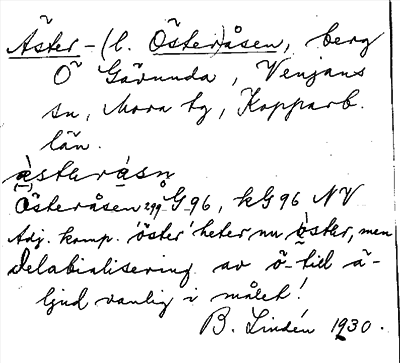 Äster-(l. Öster)åsen, berg
Ö Gävunda, Venjans
sn, Mora tg, Kopparb.
län.
àstəråsn
Österåsen 299 G 96, kG 96 NV
Adj. komp. 'öster' heter nu òstər, men
Delabialisering av ö- till ä-
ljud vanlig i målet!
B. Lindén 1930.